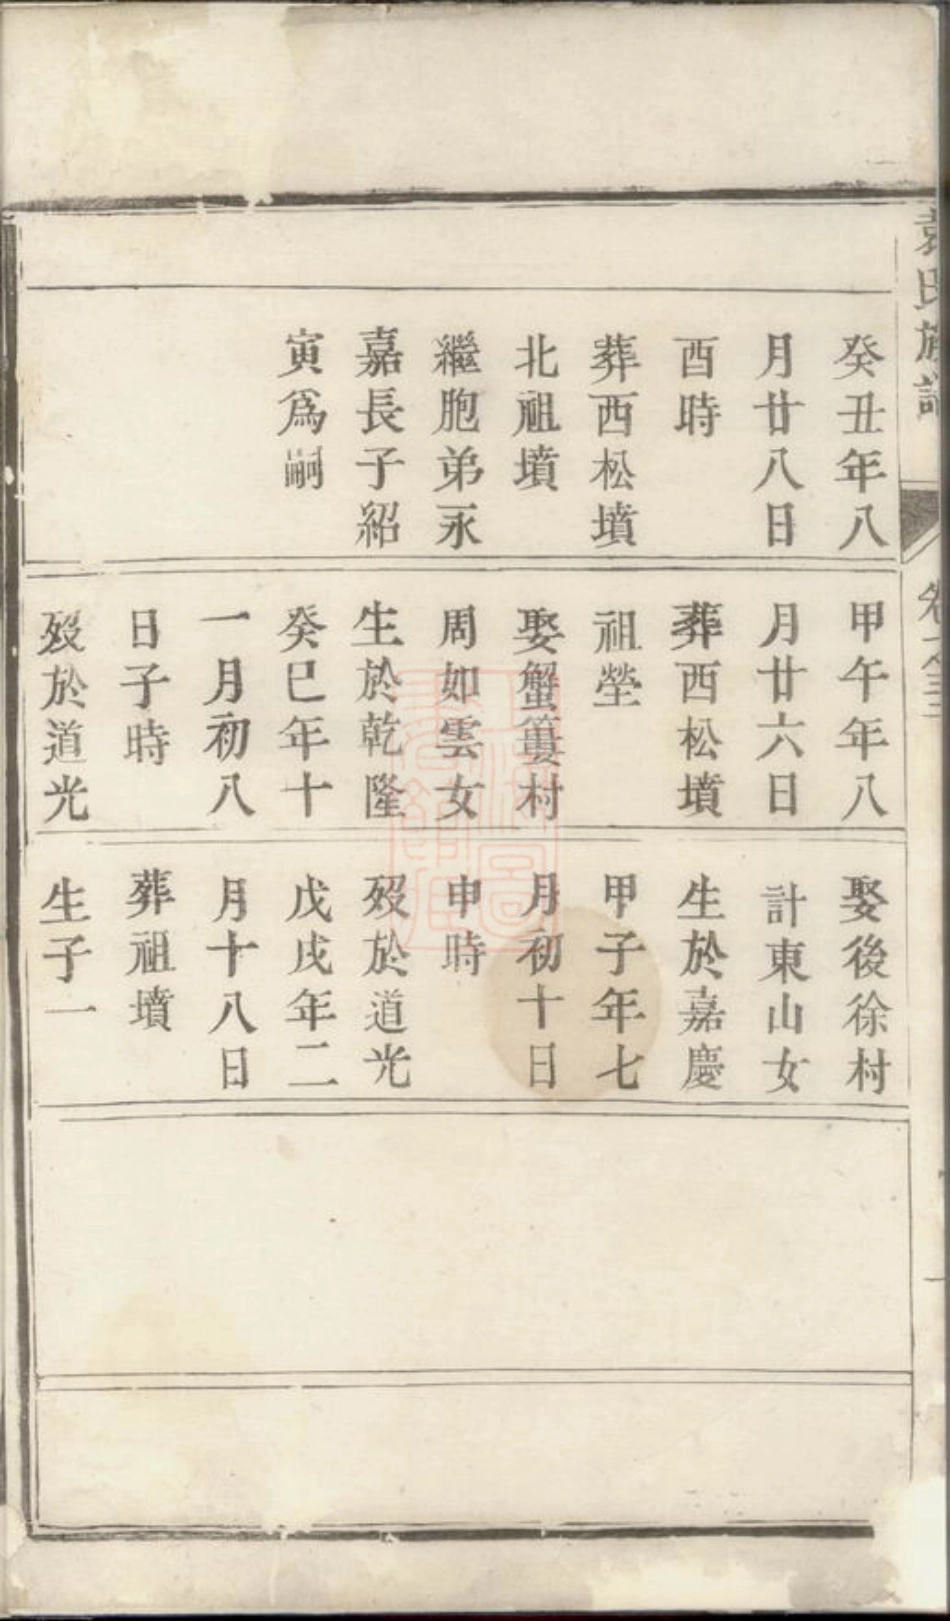 袁氏族譜
癸丑年八
月廿八日
酉時
葬西松墳
北祖墳
繼胞弟永
嘉長子紹
寅爲嗣
甲午年八
月廿六日
葬西松墳
祖塋
娶蟹簍村
周如雲女
生於乾隆
癸巳年十
一月初八
日子時
歿於道光
娶後徐村
計東山女
生於嘉慶
甲子年七
月初十日
申時
歿於道光
戊戌年二
月十八日
葬祖墳
生子一